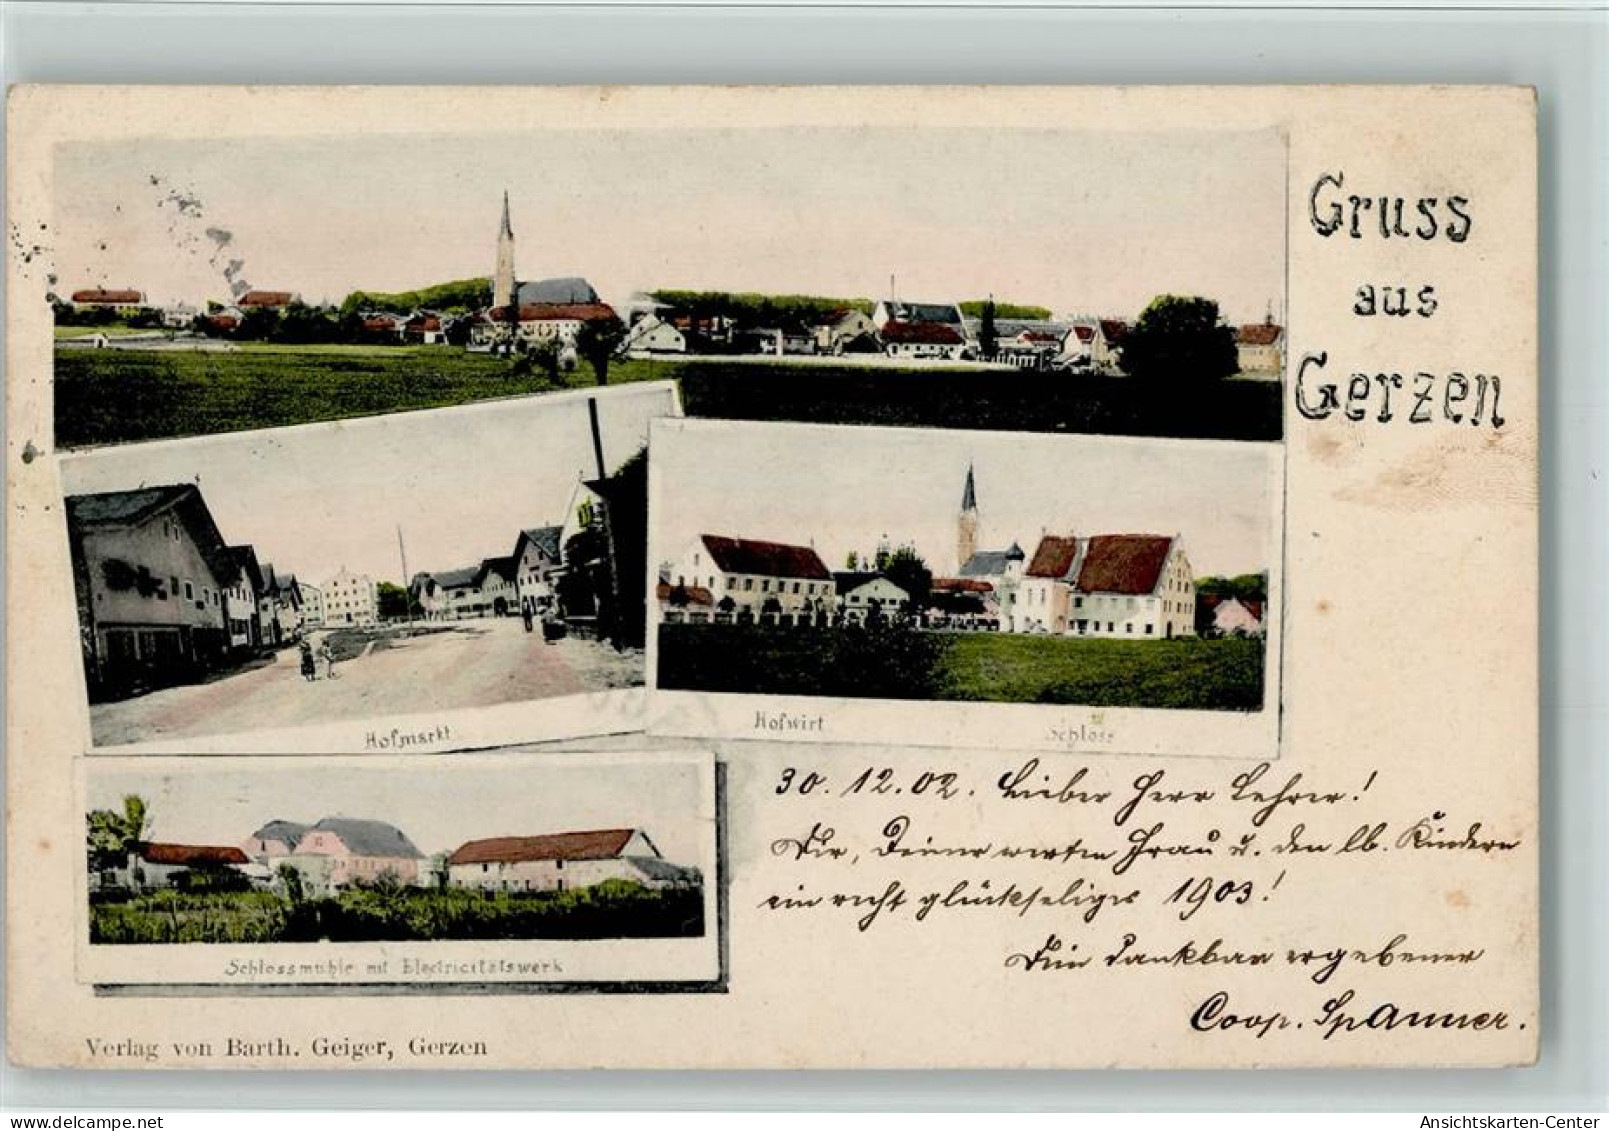 Gruss
aus
Gerzen
Hofmarkt
Hofwirt Schloss
Schlossmühle mit Electricitätswerk
30. 12. 02. Lieber Herr Lehrer!
Dir, Deiner werten Frau u. den lb. Kindern
ein recht glückseliges 1903!
Dein dankbar ergebener
Coop. Spanner.
Verlag von Barth. Geiger, Gerzen
www.delcampe.net
Ansichtskarten-Center